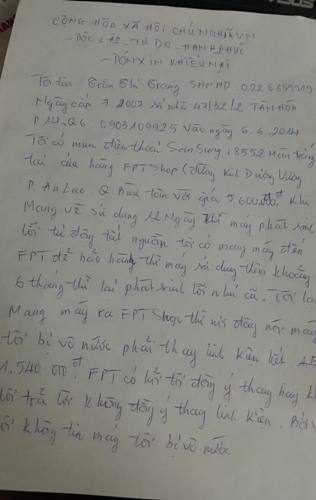 CỘNG HÒA XÃ HỘI CHỦ NGHĨA VN
- ĐỘC LẬP - TỰ DO - HẠNH PHÚC
- ĐƠN XIN KHIẾU NẠI
Tôi tên Trần Thị Trang SHCMND. 022665919
Ngày cấp 7.2007 số nhà 47/32/2 TÂN HÒA
P.14-Q6. 0903109925 vào ngày 6.6.2014
Tôi có mua điện thoại Samsung i8552 Màn trắng
tại cửa hàng FPT Shop (đường Kinh Dương Vương
P. An Lạc Q Bình tân với giá 5.600.000đ. Khi
Mang về sử dụng 12 Ngày thì máy phát sinh
lỗi tự động tắt nguồn tôi có mang máy đến
FPT để bảo hành thì máy sử dụng thêm khoảng
6 tháng thì lại phát sinh lỗi như cũ, Tôi lại
Mang máy ra FPT Shop thì nơi đây nói máy
tôi bị vô nước phải thay linh kiện hết
1.540.000đ. FPT có hỏi tôi đồng ý thay hay
tôi trả lời không đồng ý thay linh kiện. Bởi
tôi không tin máy tôi bị vô nước